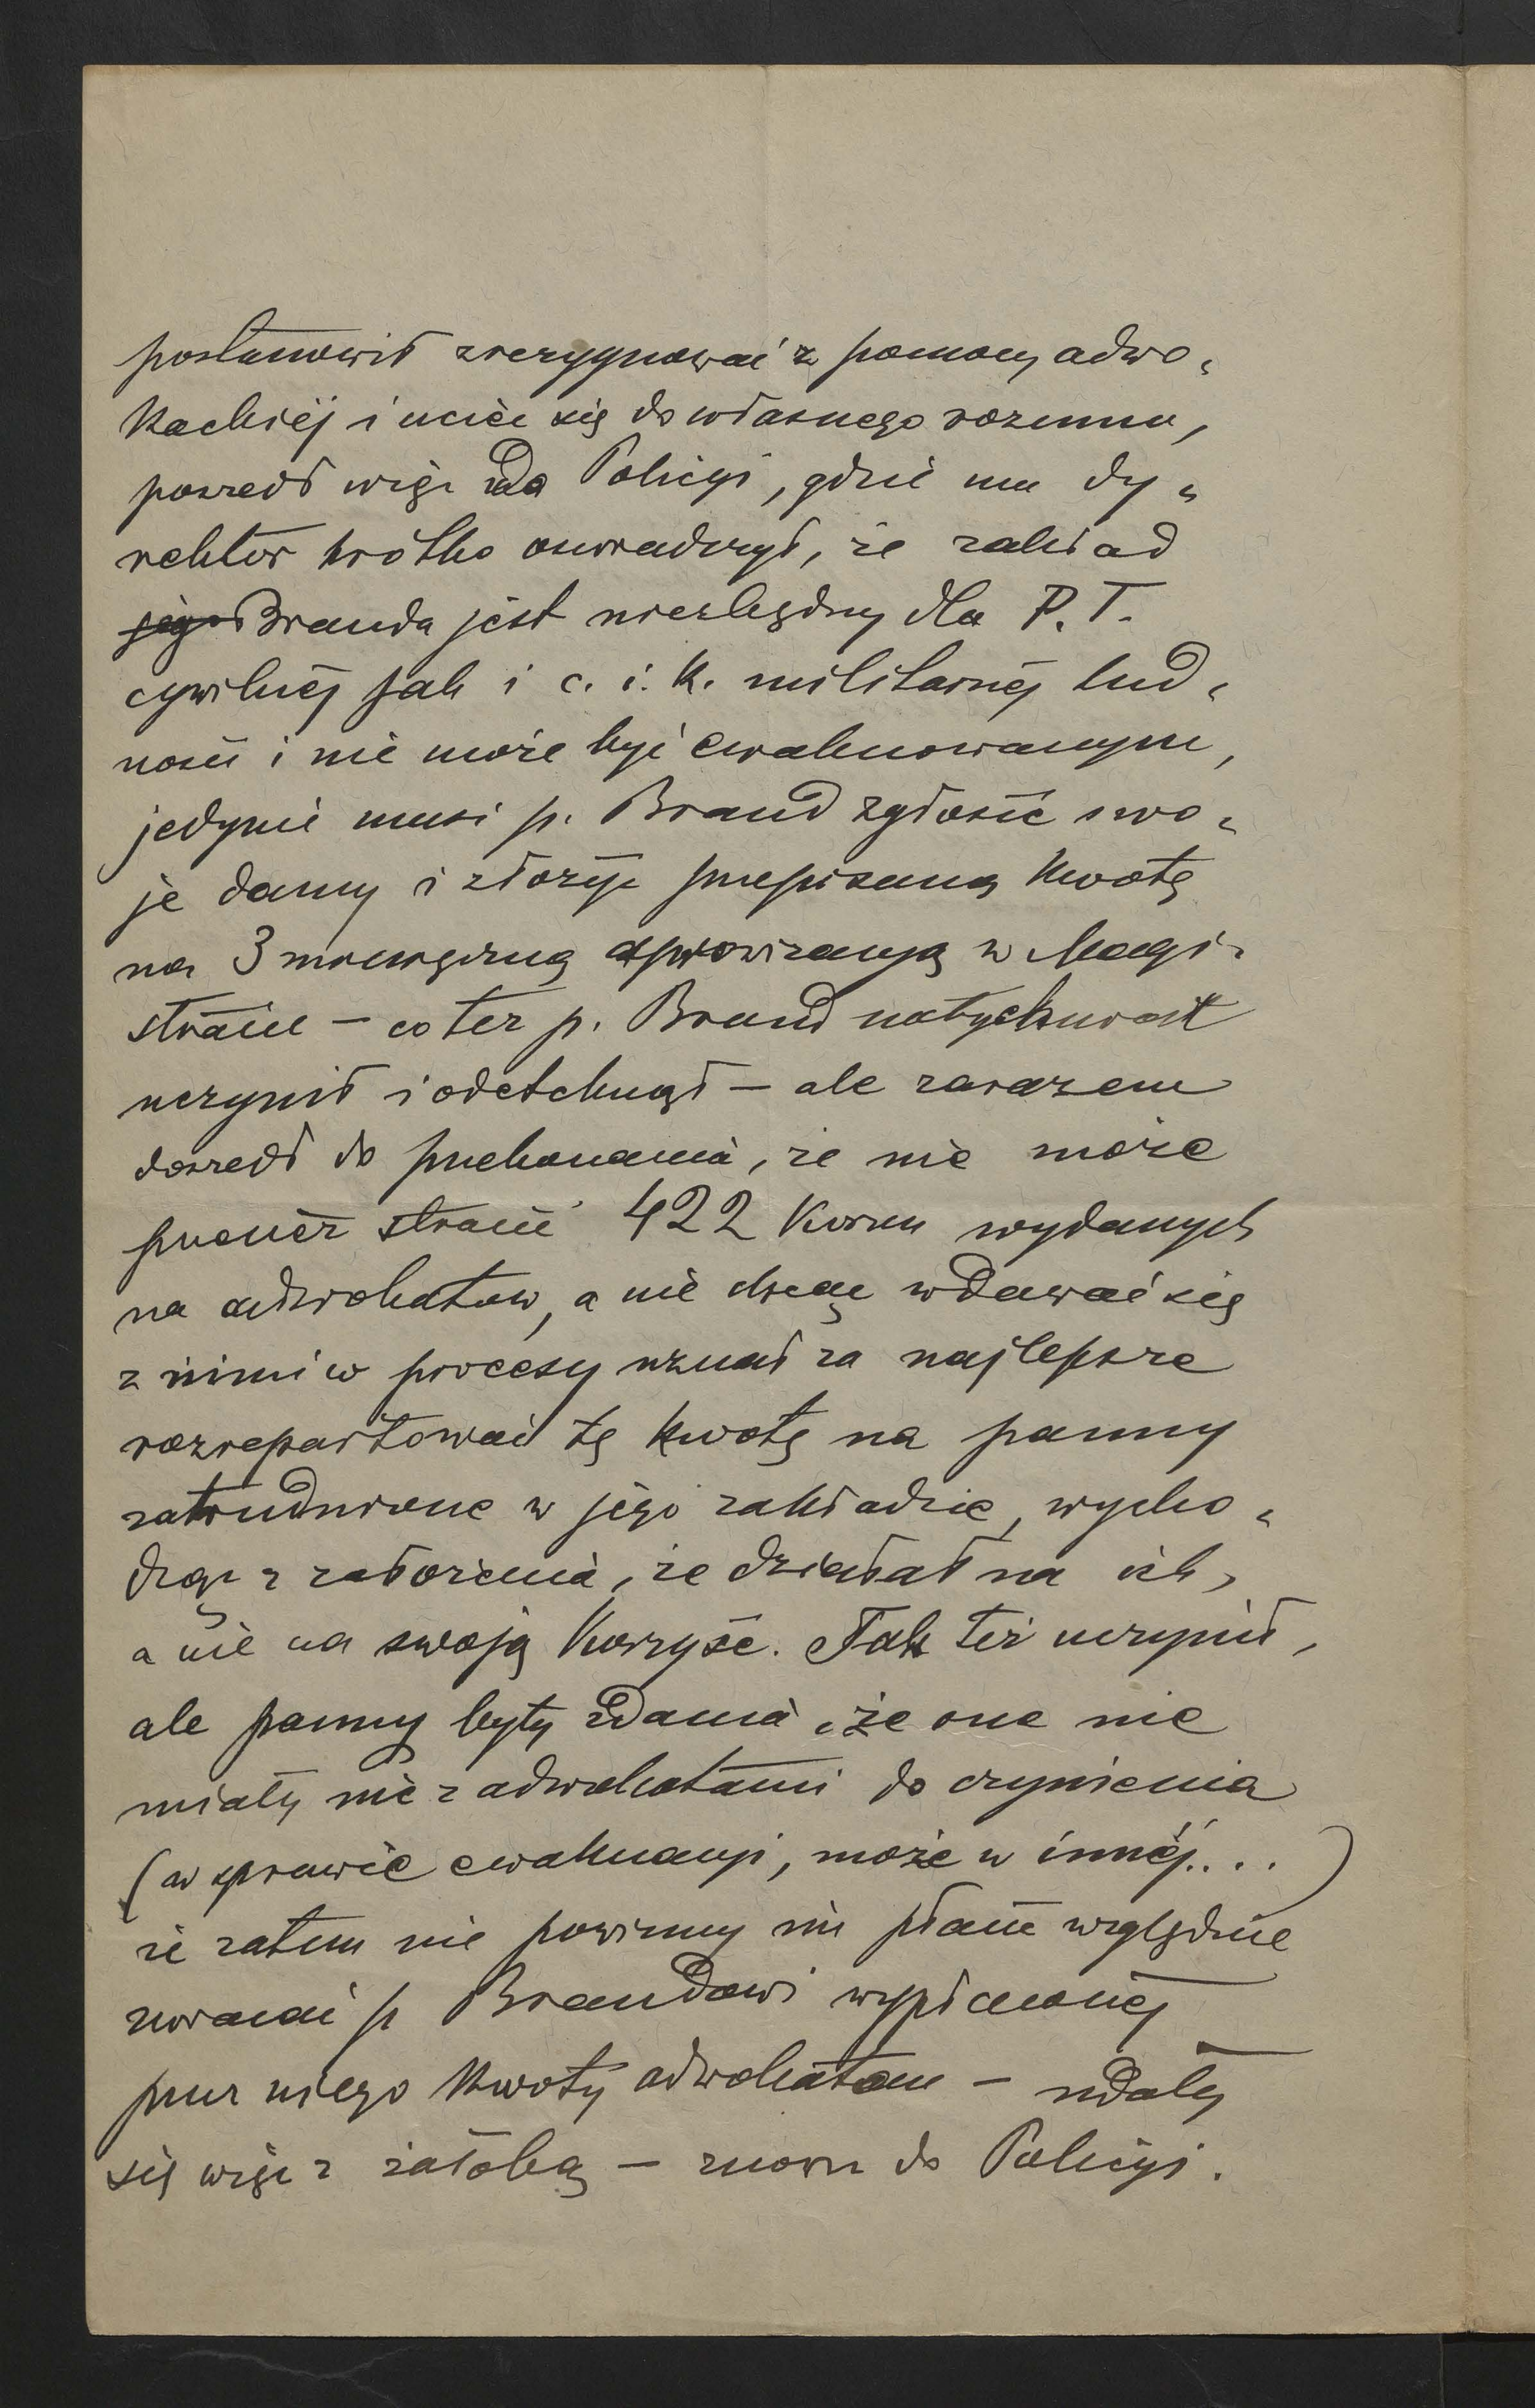 postanowił zrezygnować z pomocy adwo-
kackiéj i uciec się do własnego rozumu,
poszedł więc do Policyi, gdzie mu dy-
rektor krótko oświadczył, że zakład
jego Branda jest niezbędny dla P. T.
cywilnéj jak i c. i. k. militarnéj lud-
ności i nie może być ewakuowanym,
jedynie musi p. Brand zgłosić swo-
je damy i złożyć przepisaną kwotę
na 3 miesięczną aprowizacyą w Magi-
stracie – co też p. Brand natychmiast
uczynił i odetchnął – ale zarazem
doszedł do przekonania, że nie może
przecież stracić 422 Koron wydanych
na adwokatów, a nie chcąc wdawać się
z nimi w procesy uznał za najlepsze
rozrepartować tę kwotę na panny
zatrudnione w jego zakładzie, wycho-
dząc z założenia, że działał na ich,
a nie na swoją korzyść. Tak też uczynił,
ale panny były zdania, że one nie
miały nic z adwokatami do czynienia
(w sprawie ewakuacyi, może w innéj....)
że zatem nie powinny nic płacić względnie
zwracać p Brandowi wypłaconéj
przez niego kwoty adwokatom – udały
się więc z żałobą – znowu do Policyi.